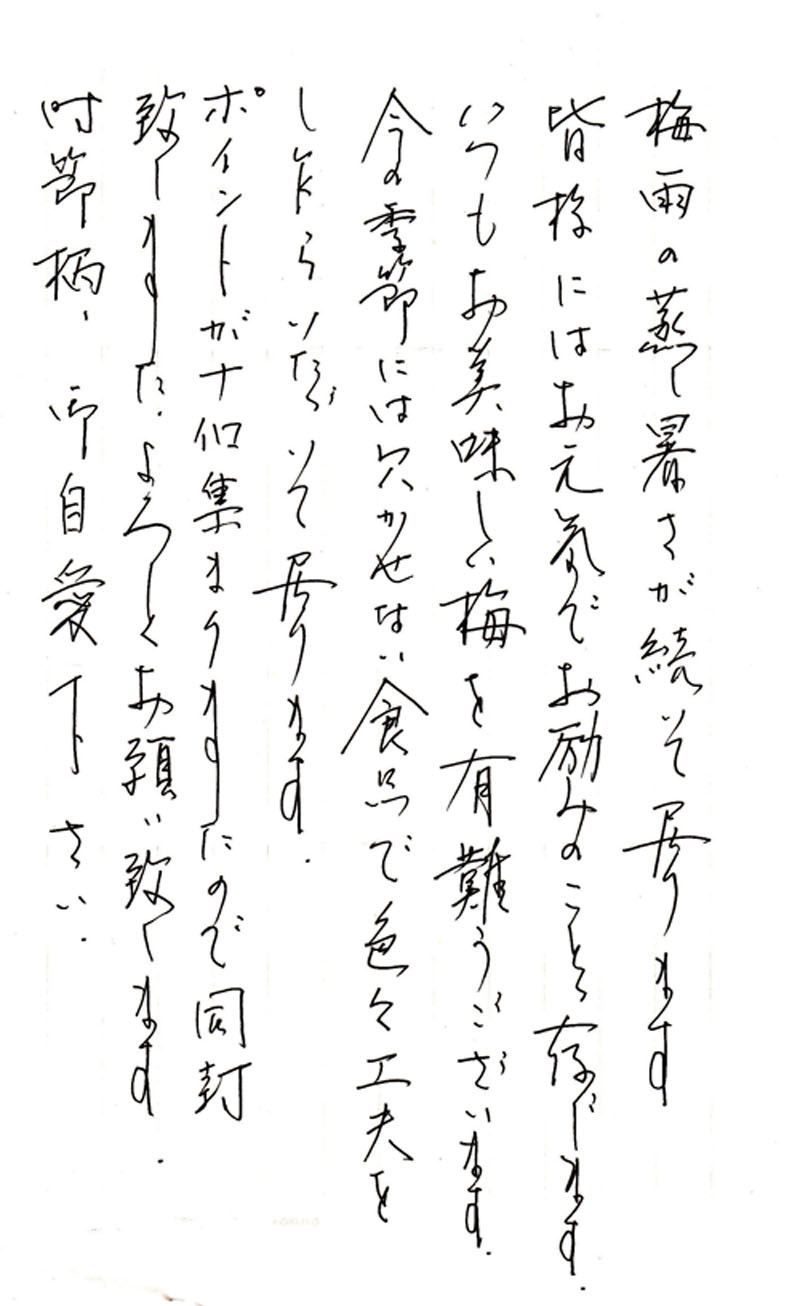 梅雨の蒸し暑さが続いて居ります
皆様にはお元気でお励みのことと存じます.
いつもお美味しい梅を有難うございます.
今の季節には欠かせない食品で色々工夫を
しながらいただいて居ります.
ポイントがナ個集まりましたので同封
致しました.よろしくお願い致します.
時節柄、御自愛下さい.